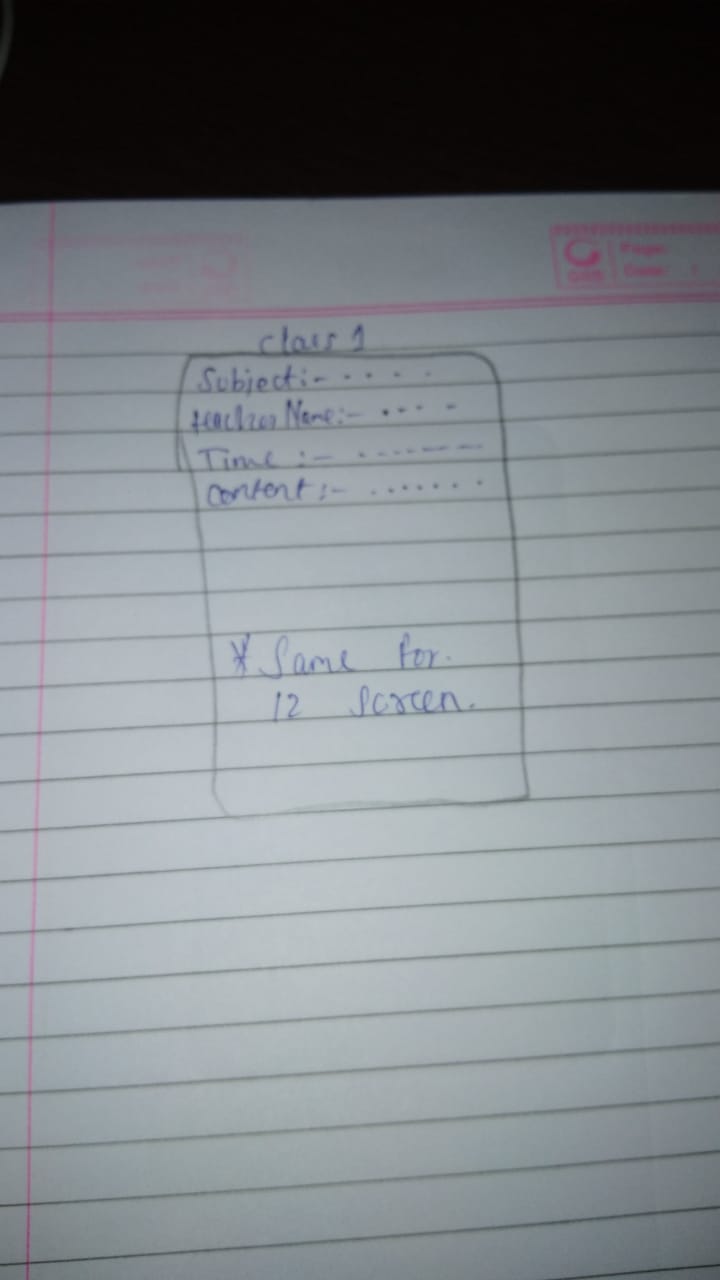 Page:
Date:
class 1
Subject:- . . . .
teacher Name:- . . . -
Time :- . - - - - - -
content :- . . . . . . .
* Same for.
12 Screen.